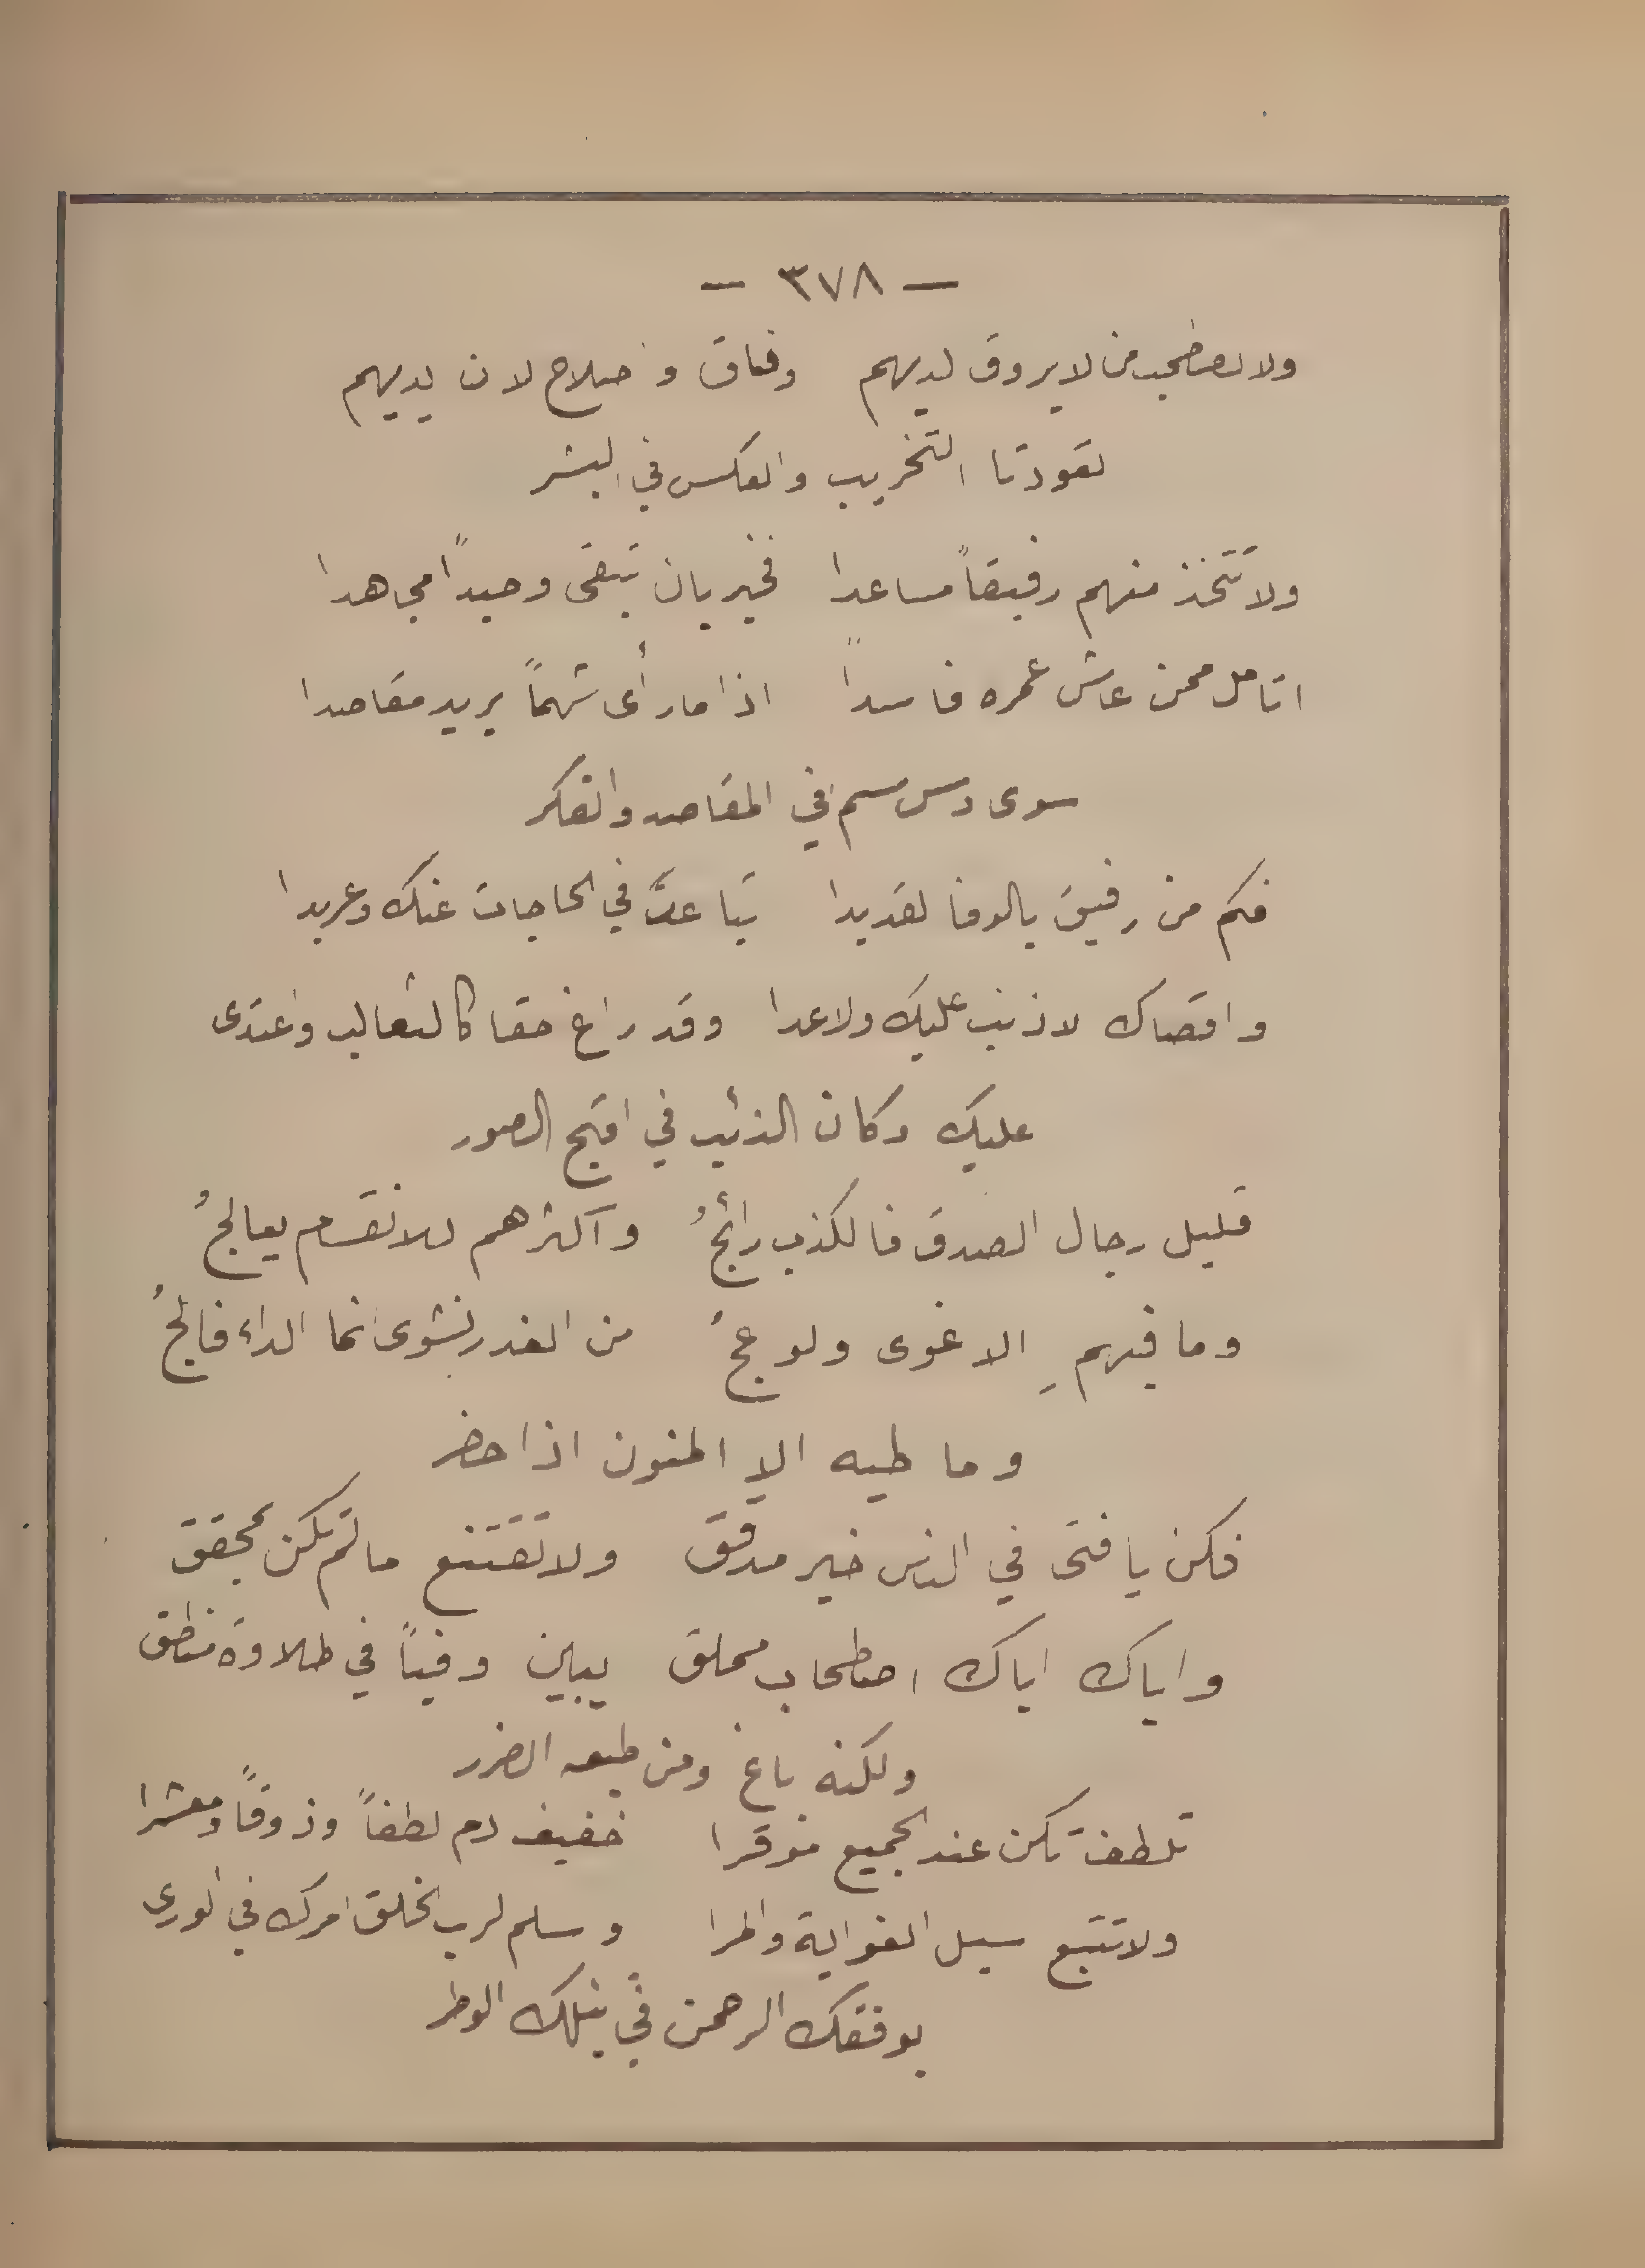 — ٣٧٨ —
ولا تصطحب من لا يروق لديهم    وفاق واصلاح لان يديهم
تعودتا التخريب والعكس في البشر
ولا تَتَّخذ منهم رفيقاً مساعدا    فخير بان تبقى وحيداً مجاهدا
اتامل ممن عاش عمره فاسداً    اذا ما رأى شهماً يريد مقاصدا
سوى دس سم في المقاصد والفكر
فكم من رفيق بالوفا لقد بدا    تباعدَ في الحاجات عنك وعربدا
واقصاك لا ذنب عليك ولا عدا    وقد راغ حقا كالثعالب واعتدى
عليك وكان الذئب في اقبح الصور
قليل رجال الصدق فالكذب رائجُ    واكثرهم للانقسام يعالجُ
وما فيهمِ الا غوى ولو عجُ    من الغدر نشوى انما الداء فالجُ
وما طبه الا المنون اذا حضر
فكن يا فتى في الناس خير مدقق    ولا تقتنع ما لم تكن بمحقق
واياك اياك اصطحاب مملق    يبين وفياً في طلاوة منطق
ولكنه باغ ومن طبعه الضرر
تلطف تكن عند الجميع موقرا    خفيف دم لطفاً وذوقاً ومعشرا
ولا تتبع سبل الغواية والمرا    وسلم لرب الخلق امرك في الورى
يوفقك الرحمن في نيلك الوطر